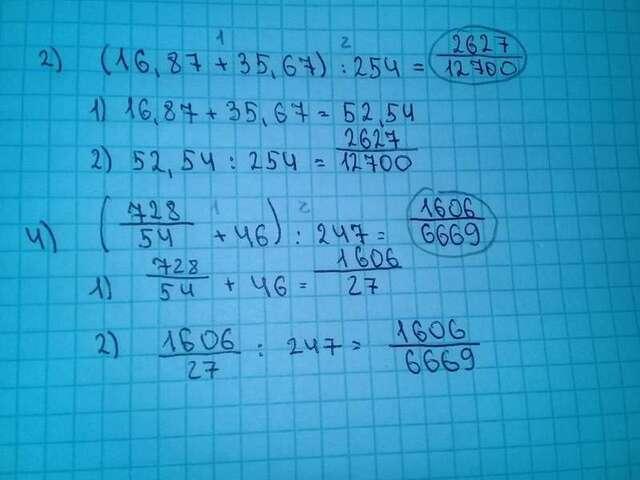 1 2
2) (16,87 + 35,67) : 254 = 2627/12700
1) 16,87 + 35,67 = 52,54
2) 52,54 : 254 = 2627/12700
1 2
4) (728/54 + 46) : 247 = 1606/6669
1) 728/54 + 46 = 1606/27
2) 1606/27 : 247 = 1606/6669